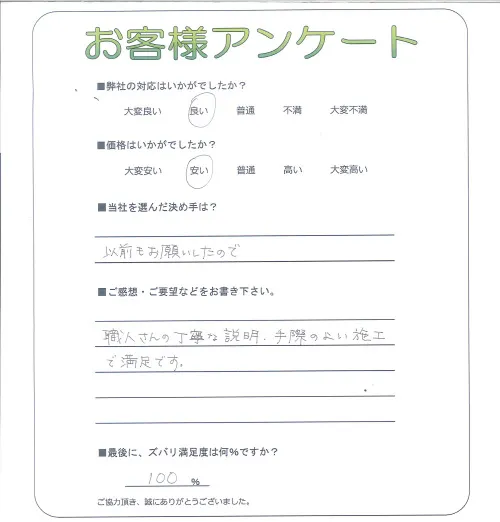 お客様アンケート
■弊社の対応はいかがでしたか？
大変良い 良い 普通 不満 大変不満
■価格はいかがでしたか？
大変安い 安い 普通 高い 大変高い
■当社を選んだ決め手は？
以前もお願いしたので
■ご感想・ご要望などをお書き下さい。
職人さんの丁寧な説明、手際のよい施工
で満足です。
■最後に、ズバリ満足度は何％ですか？
100 ％
ご協力頂き、誠にありがとうございました。